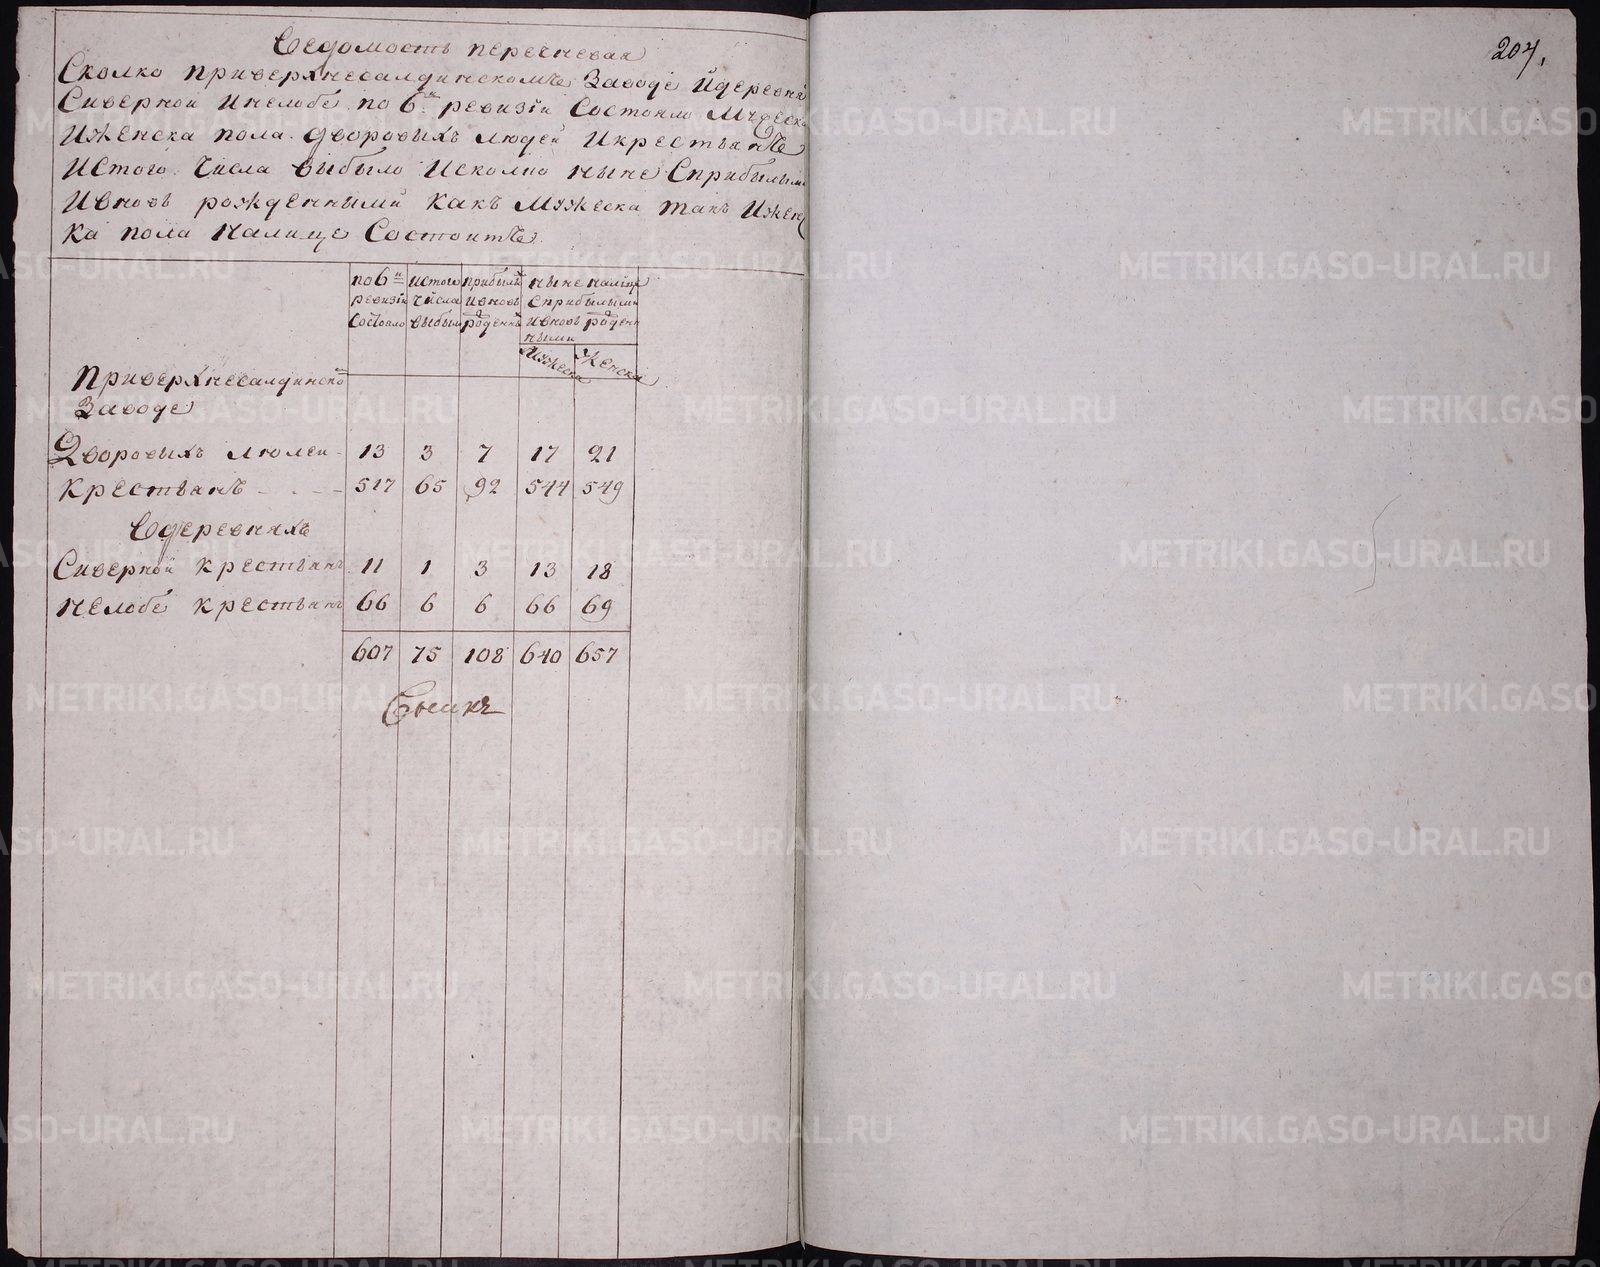 207,
Ведомость перечневая
Сколко приверхнесалдинскомъ Заводе идеревня
Сиверной Инелобе по 6й ревизiи Состояло Мужеска
Иженска пола дворовыхъ людей Икрестьянъ
Истого Числа выбыло Исколко ныне Сприбылыми
Ивновь рожденными Какъ Мужеска такъ Иженс
ка пола Налице Состоитъ
по 6й ревизiи Состояло
истого Числа выбыло
прибыло ивновь рожденныхъ
ныне налице Сприбылыми ивновь рожденными
Мужеска Женска
Приверхнесалдинскомъ
Заводе
Дворовыхъ людеи 13 3 7 17 21
крестьянъ 517 65 92 544 549
Вдеревняхъ
Сиверной крестьянъ 11 1 3 13 18
нелобе крестьянъ 66 6 6 66 69
607 75 108 640 657
METRIKI.GASO-URAL.RU